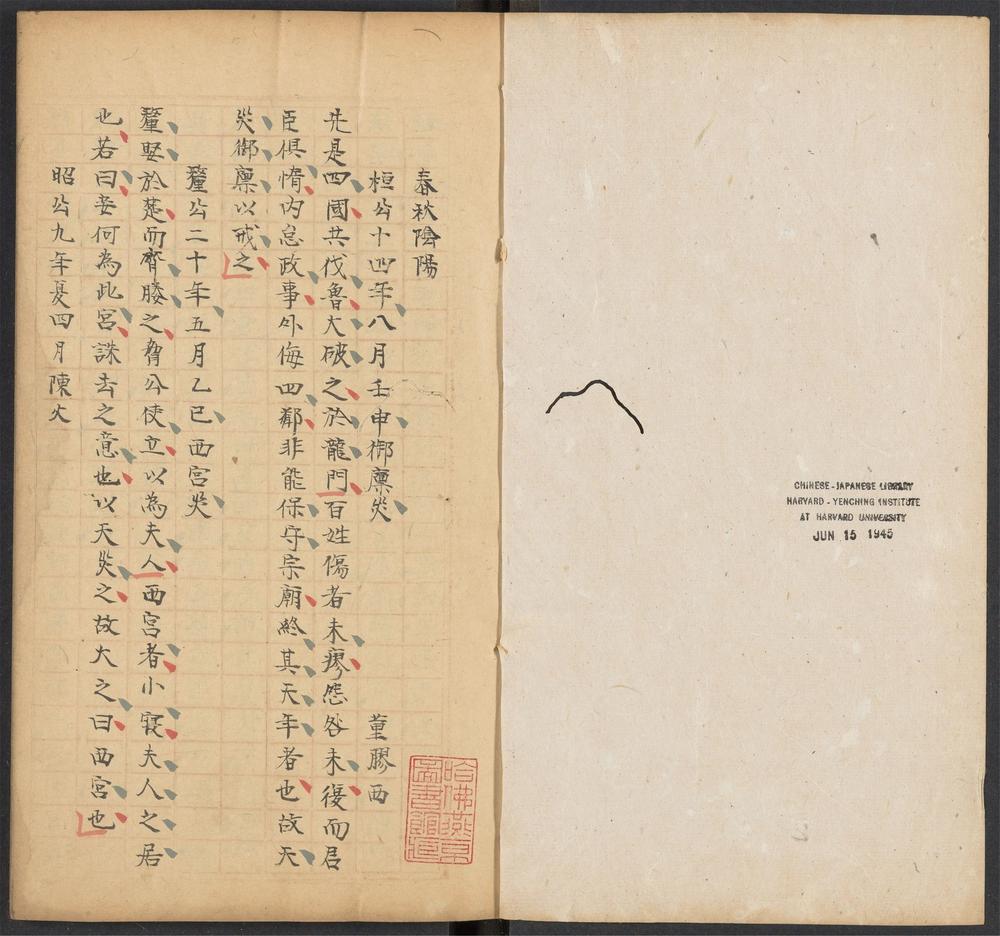 春秋陰陽
桓公十四年八月壬申御廩災 董膠西
先是四國共伐魯大破之於龍門百姓傷者未瘳怨咎未復而君
臣俱惰內怠政事外侮四鄰非能保守宗廟終其天年者也故天
災御廩以戒之
釐公二十年五月乙巳西宮災
釐娶於楚而齊媵之脅公使立以為夫人西宮者小寑夫人之居
也若曰妾何為此宮誅去之意也以天災之故大之曰西宮也
昭公九年夏四月陳火
哈佛燕京圖書館藏
CHINESE-JAPANESE LIBRARY
HARVARD-YENCHING INSTITUTE
AT HARVARD UNIVERSITY
JUN 15 1945